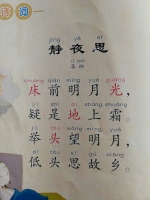 jìng yè sī
静夜思
lǐ bái
李白
chuáng qián míng yuè guāng
床前明月光，
yí shì dì shàng shuāng
疑是地上霜。
jǔ tóu wàng míng yuè
举头望明月，
dī tóu sī gù xiāng
低头思故乡。